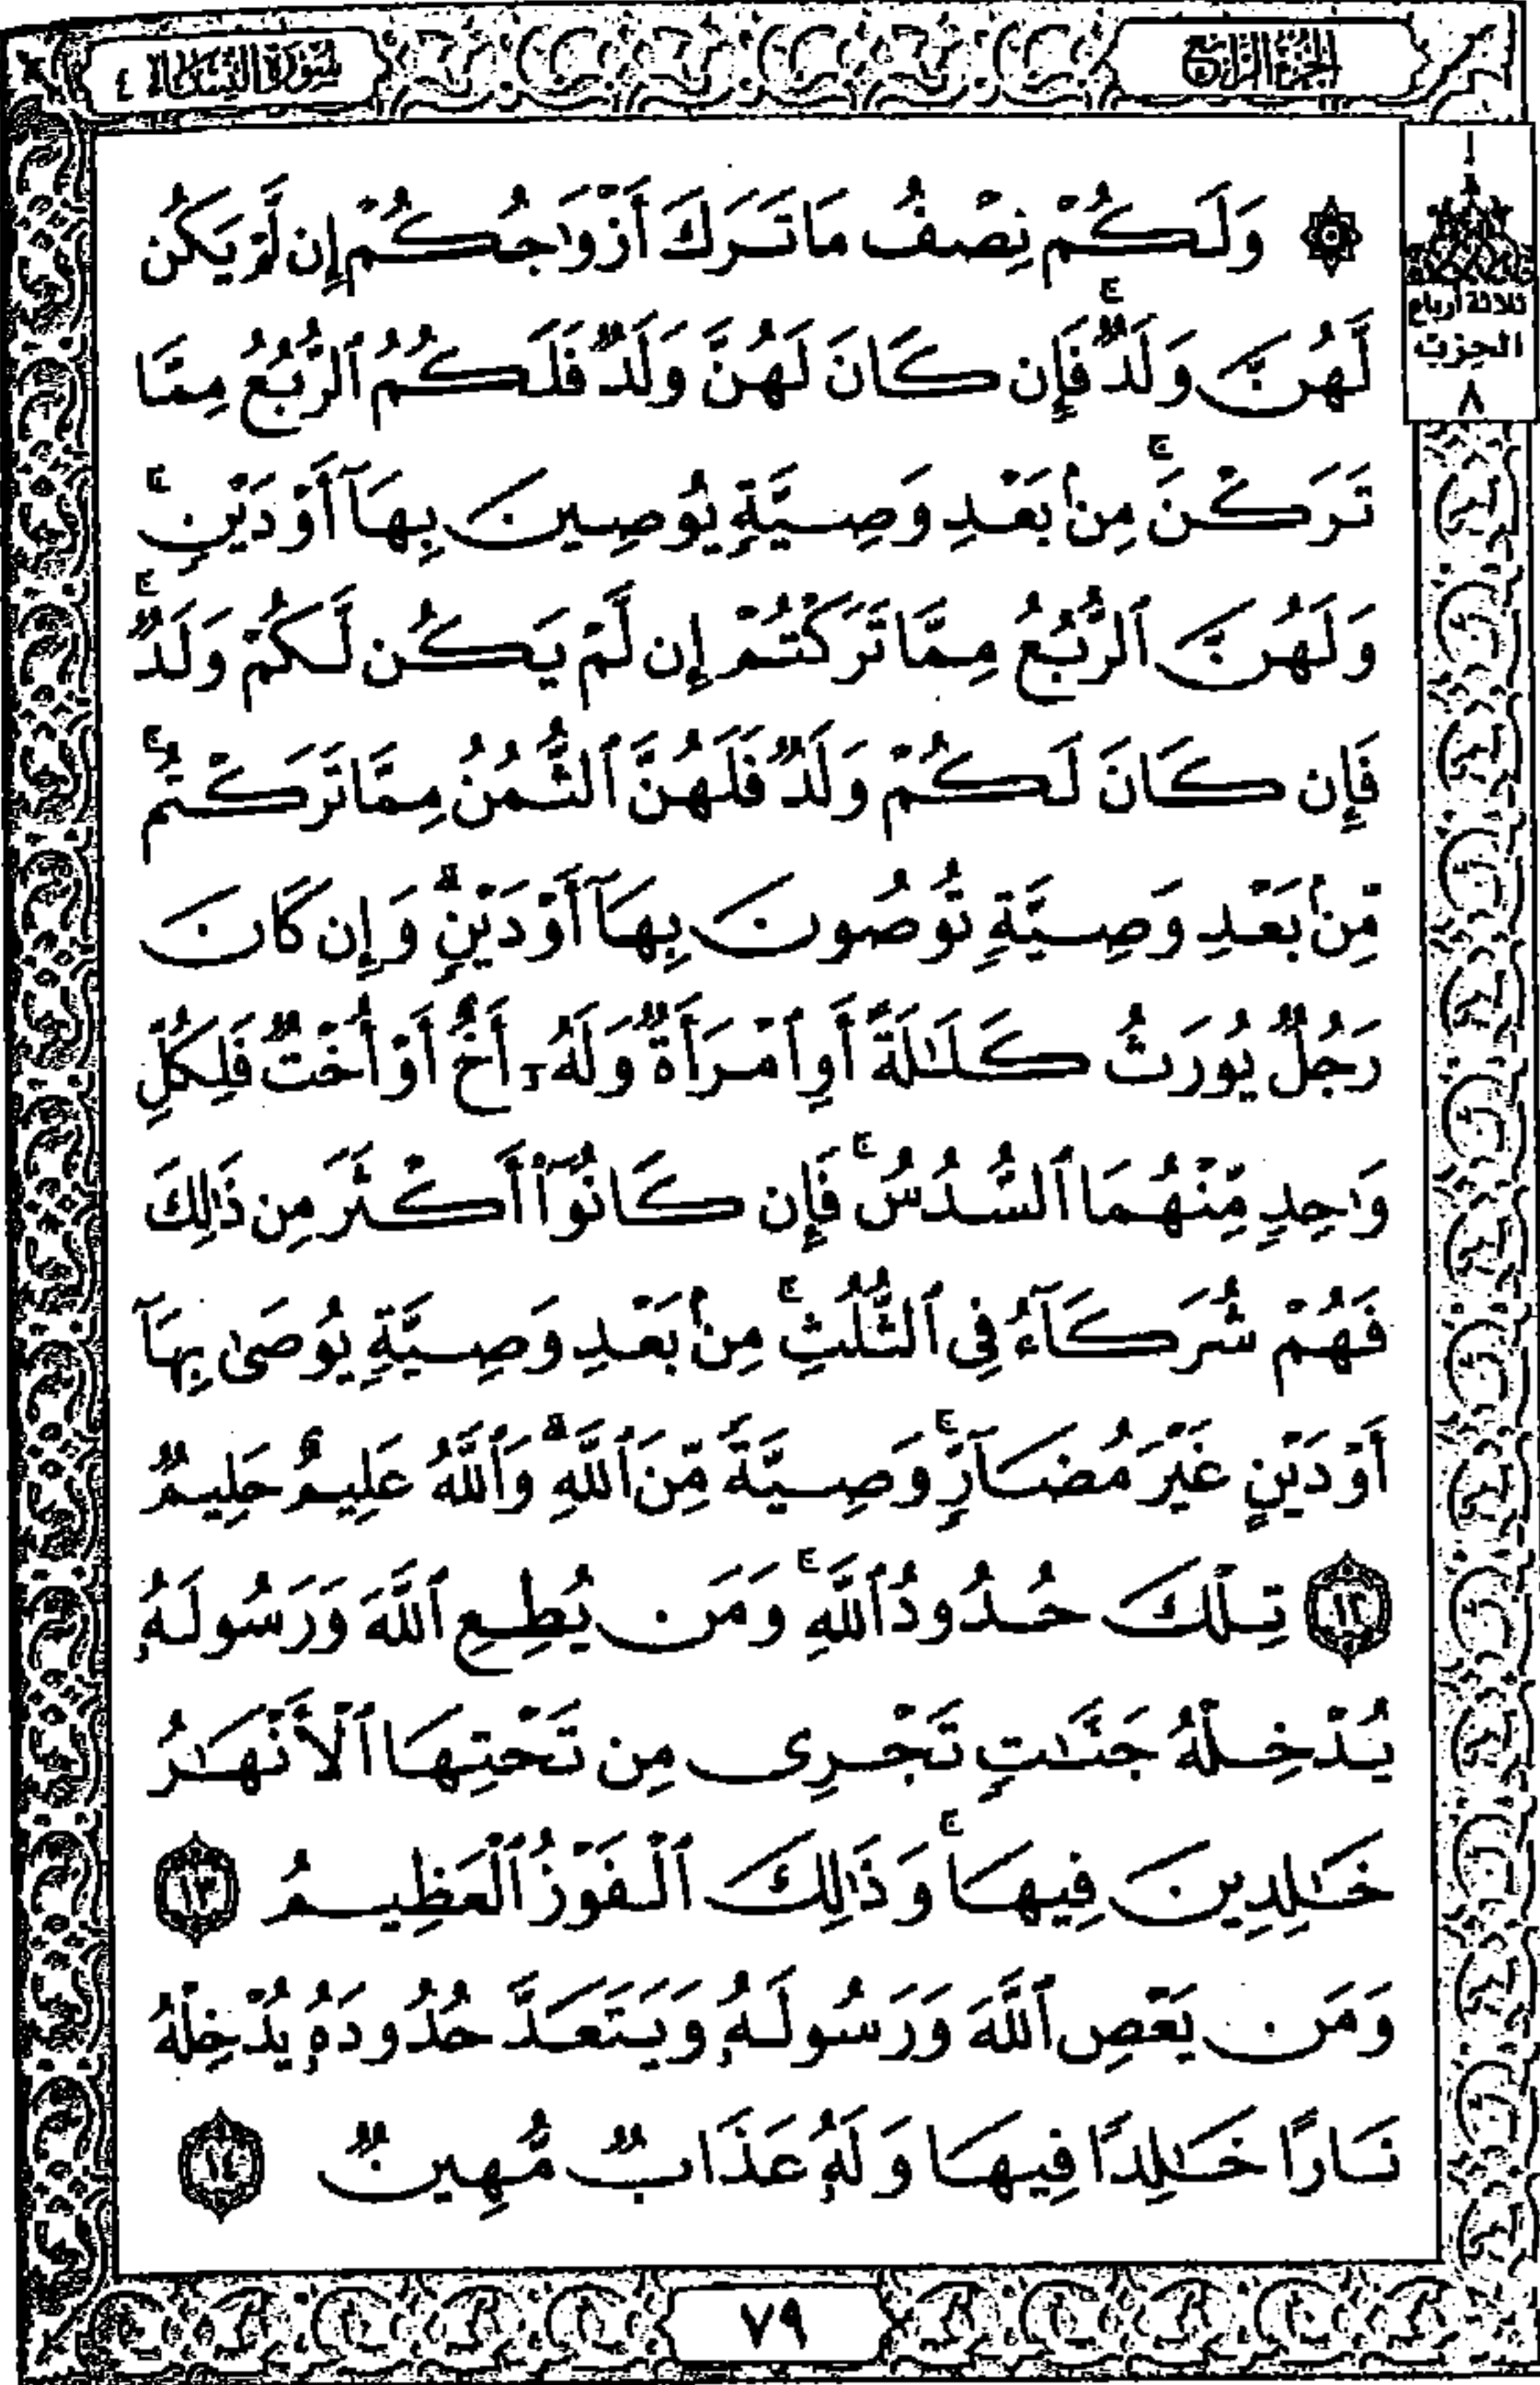 الجزء الرابع
سورة النساء ٤
ثلاثة أرباع
الحزب
٨
۞ وَلَكُمْ نِصْفُ مَا تَرَكَ أَزْوَٰجُكُمْ إِن لَّمْ يَكُن
لَّهُنَّ وَلَدٌ ۚ فَإِن كَانَ لَهُنَّ وَلَدٌ فَلَكُمُ ٱلرُّبُعُ مِمَّا
تَرَكْنَ ۚ مِنۢ بَعْدِ وَصِيَّةٍ يُوصِينَ بِهَآ أَوْ دَيْنٍ ۚ
وَلَهُنَّ ٱلرُّبُعُ مِمَّا تَرَكْتُمْ إِن لَّمْ يَكُن لَّكُمْ وَلَدٌ ۚ
فَإِن كَانَ لَكُمْ وَلَدٌ فَلَهُنَّ ٱلثُّمُنُ مِمَّا تَرَكْتُم ۚ
مِّنۢ بَعْدِ وَصِيَّةٍ تُوصُونَ بِهَآ أَوْ دَيْنٍ ۗ وَإِن كَانَ
رَجُلٌ يُورَثُ كَلَٰلَةً أَوِ ٱمْرَأَةٌ وَلَهُۥٓ أَخٌ أَوْ أُخْتٌ فَلِكُلِّ
وَٰحِدٍ مِّنْهُمَا ٱلسُّدُسُ ۚ فَإِن كَانُوٓا۟ أَكْثَرَ مِن ذَٰلِكَ
فَهُمْ شُرَكَآءُ فِى ٱلثُّلُثِ ۚ مِنۢ بَعْدِ وَصِيَّةٍ يُوصَىٰ بِهَآ
أَوْ دَيْنٍ غَيْرَ مُضَآرٍّ ۚ وَصِيَّةً مِّنَ ٱللَّهِ ۗ وَٱللَّهُ عَلِيمٌ حَلِيمٌ
١٢ تِلْكَ حُدُودُ ٱللَّهِ ۚ وَمَن يُطِعِ ٱللَّهَ وَرَسُولَهُۥ
يُدْخِلْهُ جَنَّٰتٍ تَجْرِى مِن تَحْتِهَا ٱلْأَنْهَٰرُ
خَٰلِدِينَ فِيهَا ۚ وَذَٰلِكَ ٱلْفَوْزُ ٱلْعَظِيمُ ١٣
وَمَن يَعْصِ ٱللَّهَ وَرَسُولَهُۥ وَيَتَعَدَّ حُدُودَهُۥ يُدْخِلْهُ
نَارًا خَٰلِدًا فِيهَا وَلَهُۥ عَذَابٌ مُّهِينٌ ١٤
٧٩